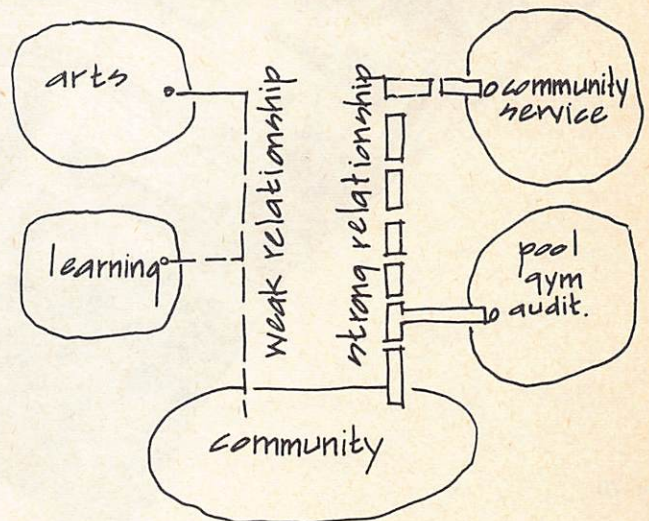 arts
learning
weak relationship
strong relationship
community
service
pool
gym
audit.
community